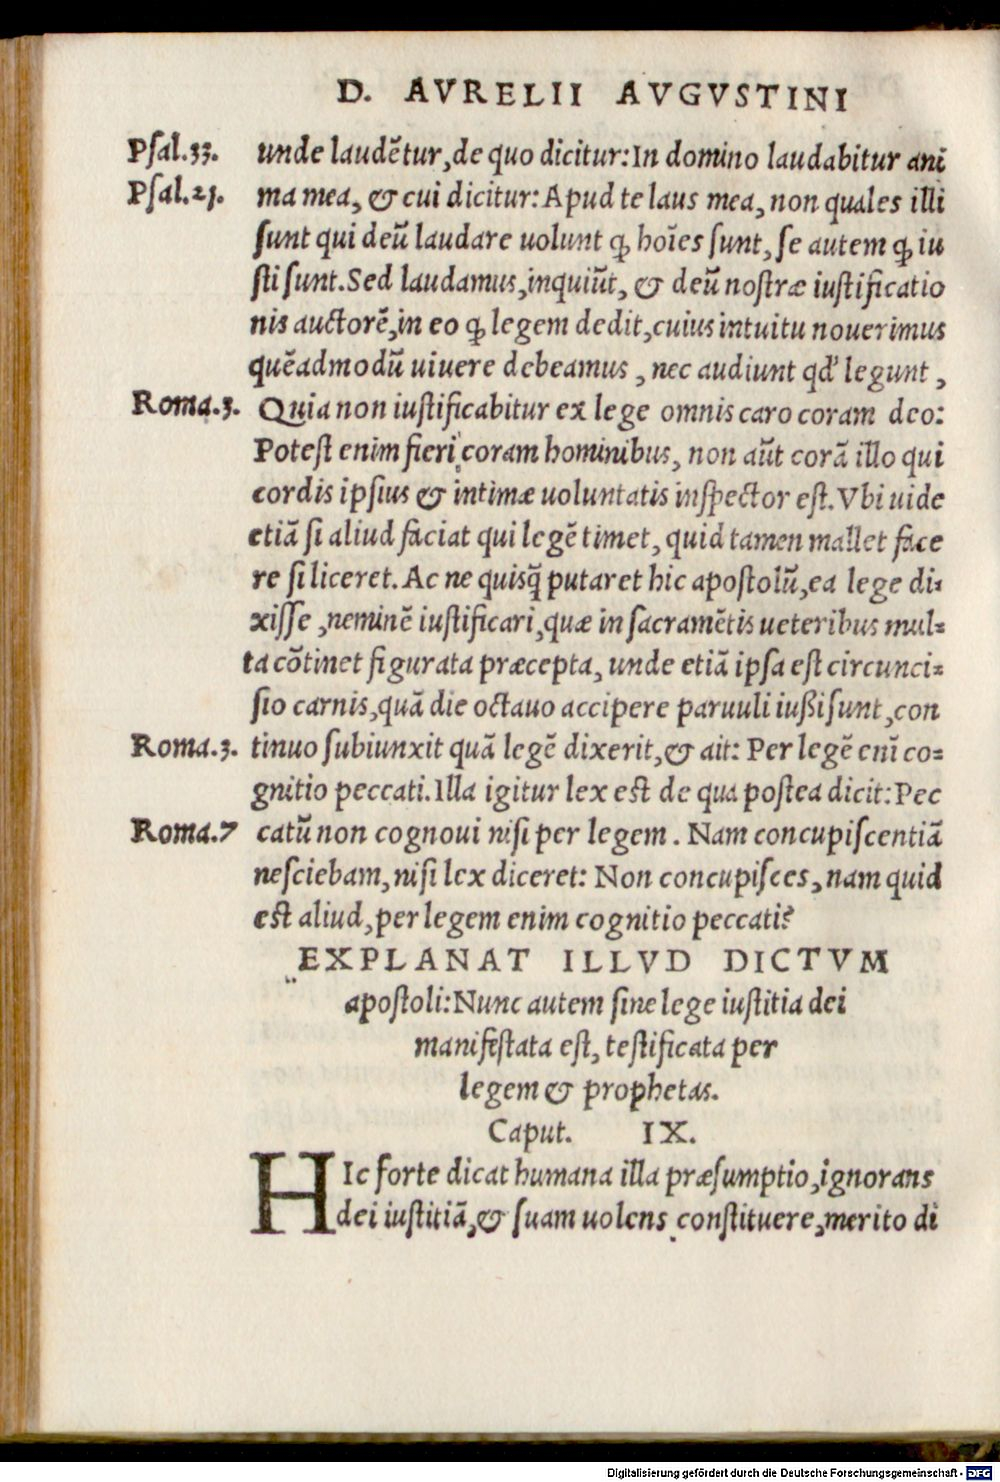 D. AVRELII AVGVSTINI
Psal.33. unde laudẽtur, de quo dicitur: In domino laudabitur ani
Psal.21. ma mea, & cui dicitur: Apud te laus mea, non quales illi
sunt qui deũ laudare uolunt ꝙ hoĩes sunt, se autem ꝙ iu
sti sunt. Sed laudamus, inquiũt, & deũ nostræ iustificatio
nis auctorẽ, in eo ꝙ legem dedit, cuius intuitu nouerimus
quẽadmodũ uiuere debeamus, nec audiunt qd' legunt,
Roma.3. Quia non iustificabitur ex lege omnis caro coram deo:
Potest enim fieri coram hominibus, non aũt corã illo qui
cordis ipsius & intimæ uoluntatis inspector est. Vbi uide
etiã si aliud faciat qui legẽ timet, quid tamen mallet face
re si liceret. Ac ne quisq̃ putaret hic apostolũ, ea lege di-
xisse, neminẽ iustificari, quæ in sacramẽtis ueteribus mul-
ta cõtinet figurata præcepta, unde etiã ipsa est circunci-
sio carnis, quã die octauo accipere paruuli iußi sunt, con
Roma.3. tinuo subiunxit quã legẽ dixerit, & ait: Per legẽ enĩ co-
gnitio peccati. Illa igitur lex est de qua postea dicit: Pec
Roma.7 catũ non cognoui nisi per legem. Nam concupiscentiã
nesciebam, nisi lex diceret: Non concupisces, nam quid
est aliud, per legem enim cognitio peccati?
EXPLANAT ILLVD DICTVM
apostoli: Nunc autem sine lege iustitia dei
manifestata est, testificata per
legem & prophetas.
Caput. IX.
HIc forte dicat humana illa præsumptio, ignorans
dei iustitiã, & suam uolens constituere, merito di
Digitalisierung gefördert durch die Deutsche Forschungsgemeinschaft - DFG